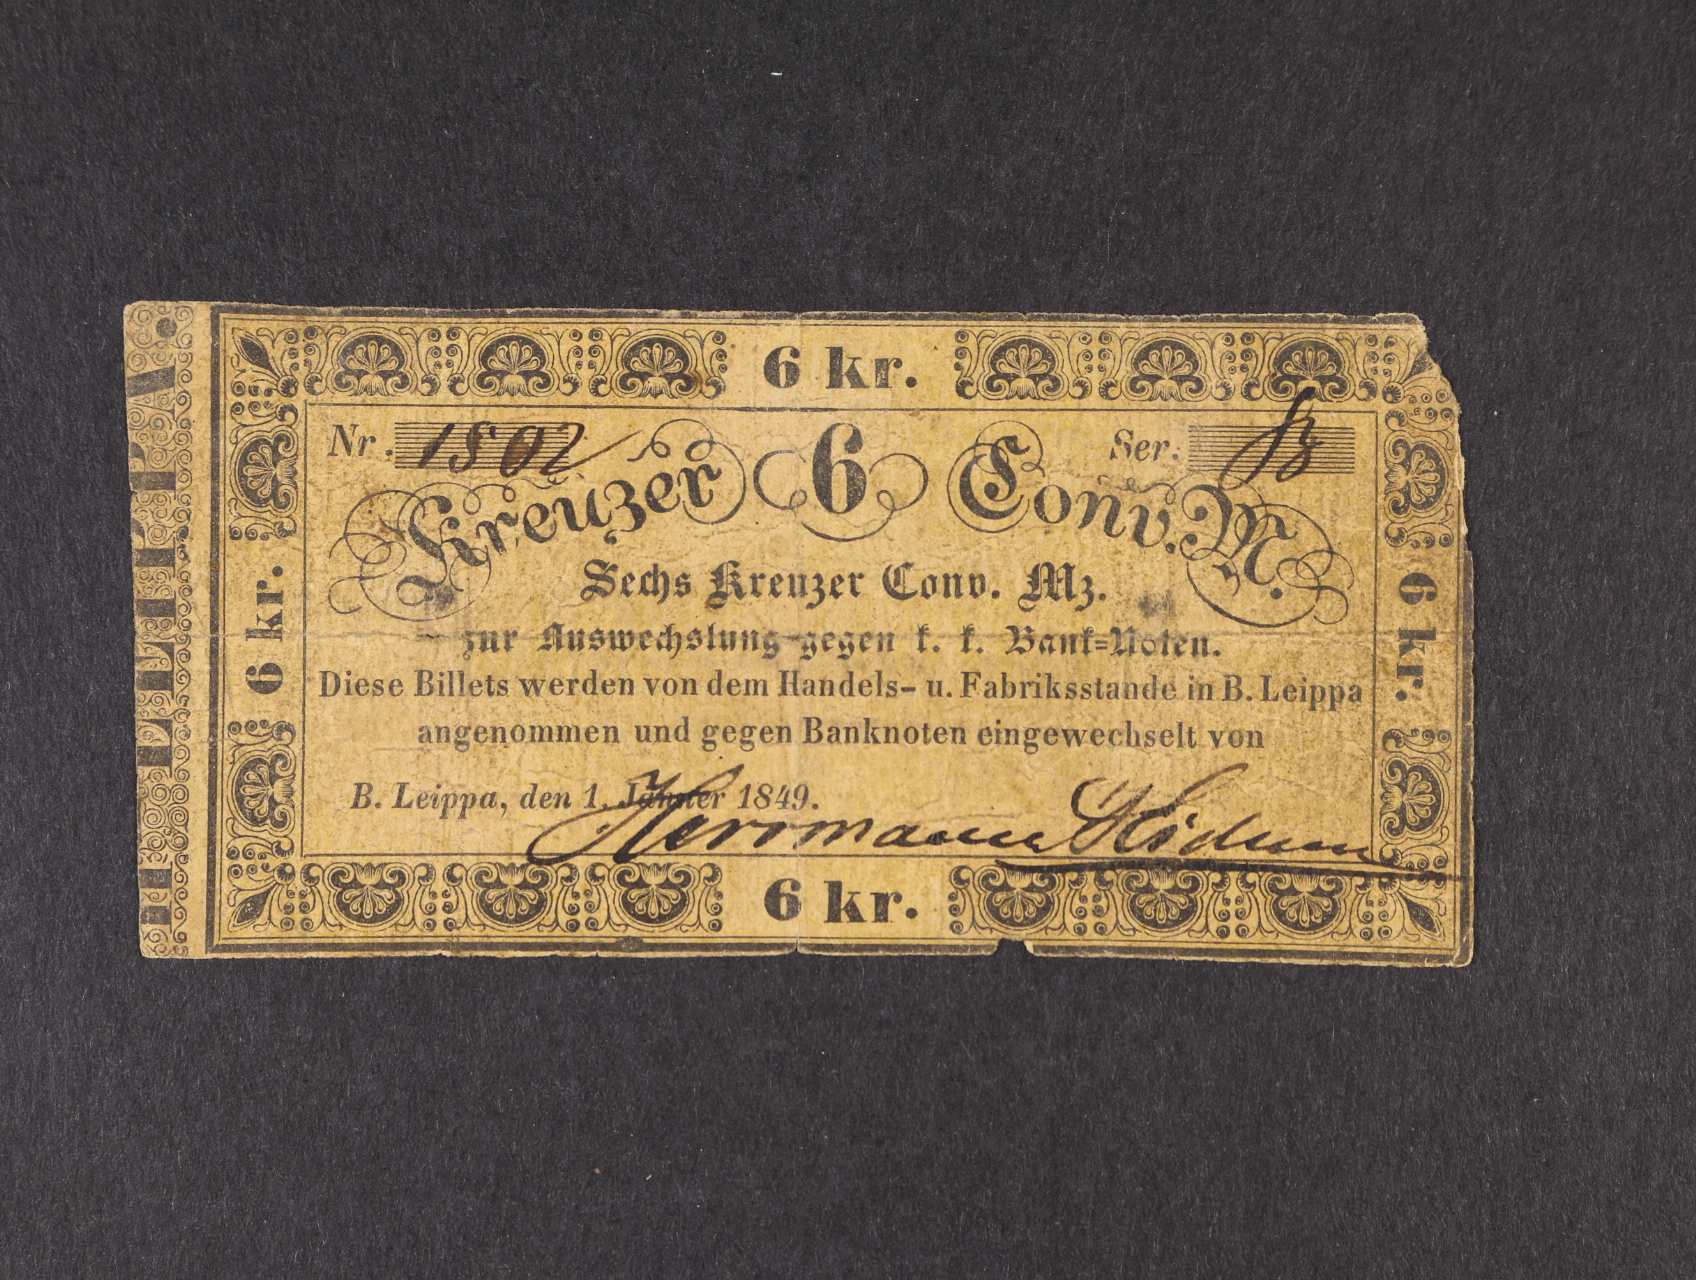 6 kr.
Nr. 1802 Ser.
Kreuzer 6 Conv. M.
Sechs Kreuzer Conv. Mz.
zur Auswechslung gegen k. k. Bank=Noten.
Diese Billets werden von dem Handels- u. Fabriksstande in B. Leippa
angenommen und gegen Banknoten eingewechselt von
B. Leippa, den 1. Jänner 1849.
Herrmann
6 kr.
6 kr.
6 kr.
LEIPPA.